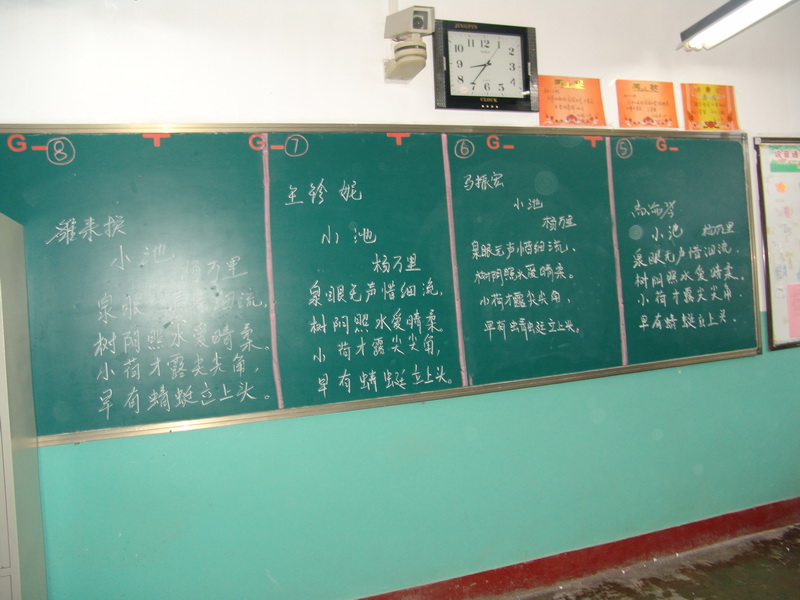 G
⑧
小池
杨万里
泉眼无声惜细流,
树阴照水爱晴柔、
小荷才露尖尖角,
早有蜻蜓立上头。
G
⑦
小池
杨万里
泉眼无声惜细流,
树阴照水爱晴柔
小荷才露尖尖角,
早有蜻蜓立上头。
G
⑥
马振宏
小池
杨万里
泉眼无声惜细流、
树阴照水爱晴柔。
小荷才露尖尖角,
早有蜻蜓立上头。
G
⑤
小池 杨万里
泉眼无声惜细流,
树阴照水爱晴柔、
小荷才露尖尖角,
早有蜻蜓立上头、
12
1
2
3
4
5
6
7
8
9
10
11